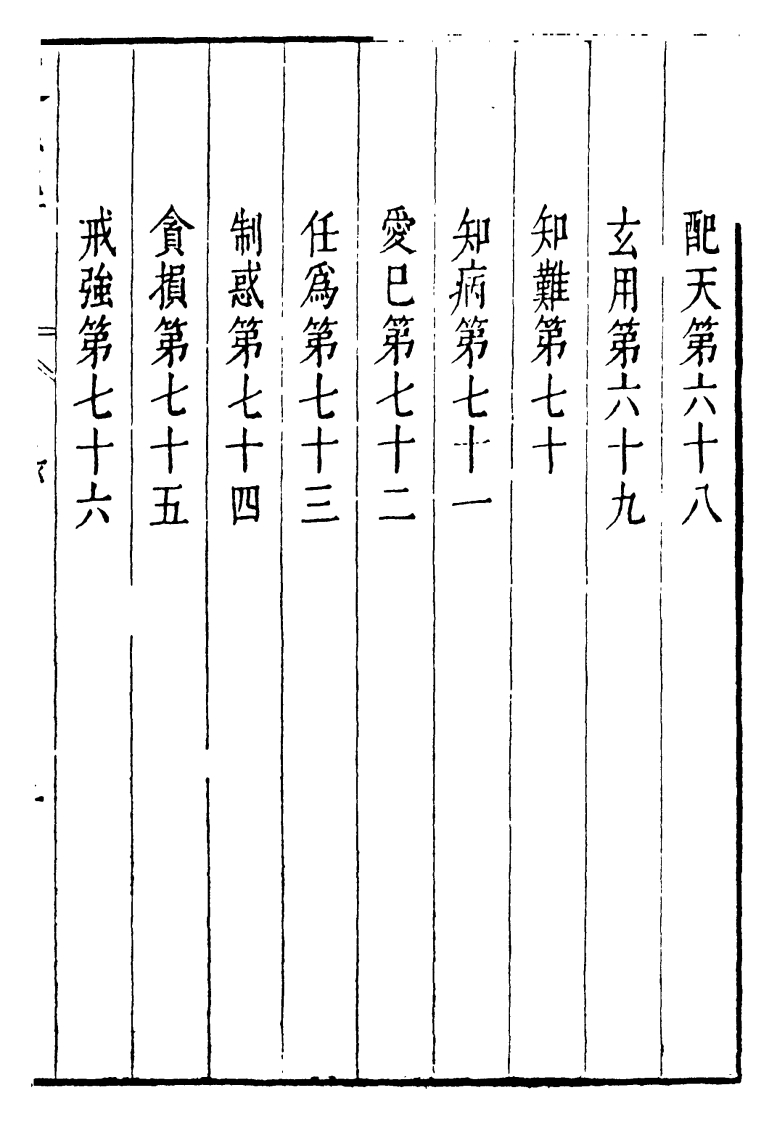 配天第六十八
玄用第六十九
知難第七十
知病第七十一
愛巳第七十二
任爲第七十三
制惑第七十四
貪損第七十五
戒強第七十六